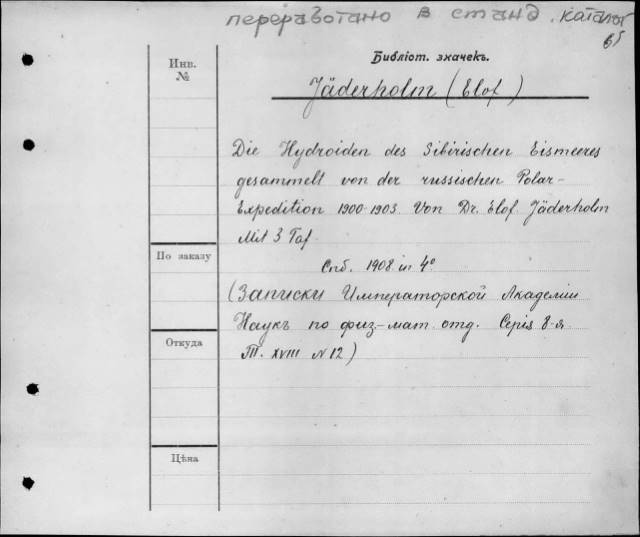 переработано в станд. каталог
Библіот. значекъ.
Инв.
№
Jäderholm (Elof)
Die Hydroiden des Sibirischen Eismeeres
gesammelt von der russischen Polar-
Expedition 1900-1903. Von Dr. Elof Jäderholm
Mit 3 Taf.
По заказу
Спб. 1908. in 4°
(Записки Императорской Академіи
Наукъ по физ-мат. отд. Серія 8-я
Т. XVIII N 12)
Откуда
Цѣна